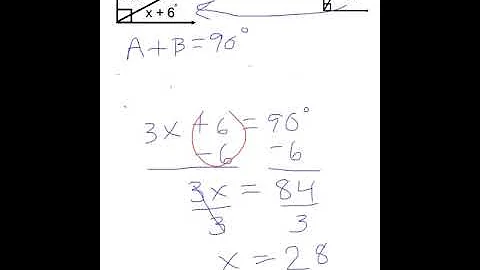 x + 6°
A + B = 90°
3x + 6 = 90°
- 6 - 6
3x = 84
3 3
x = 28